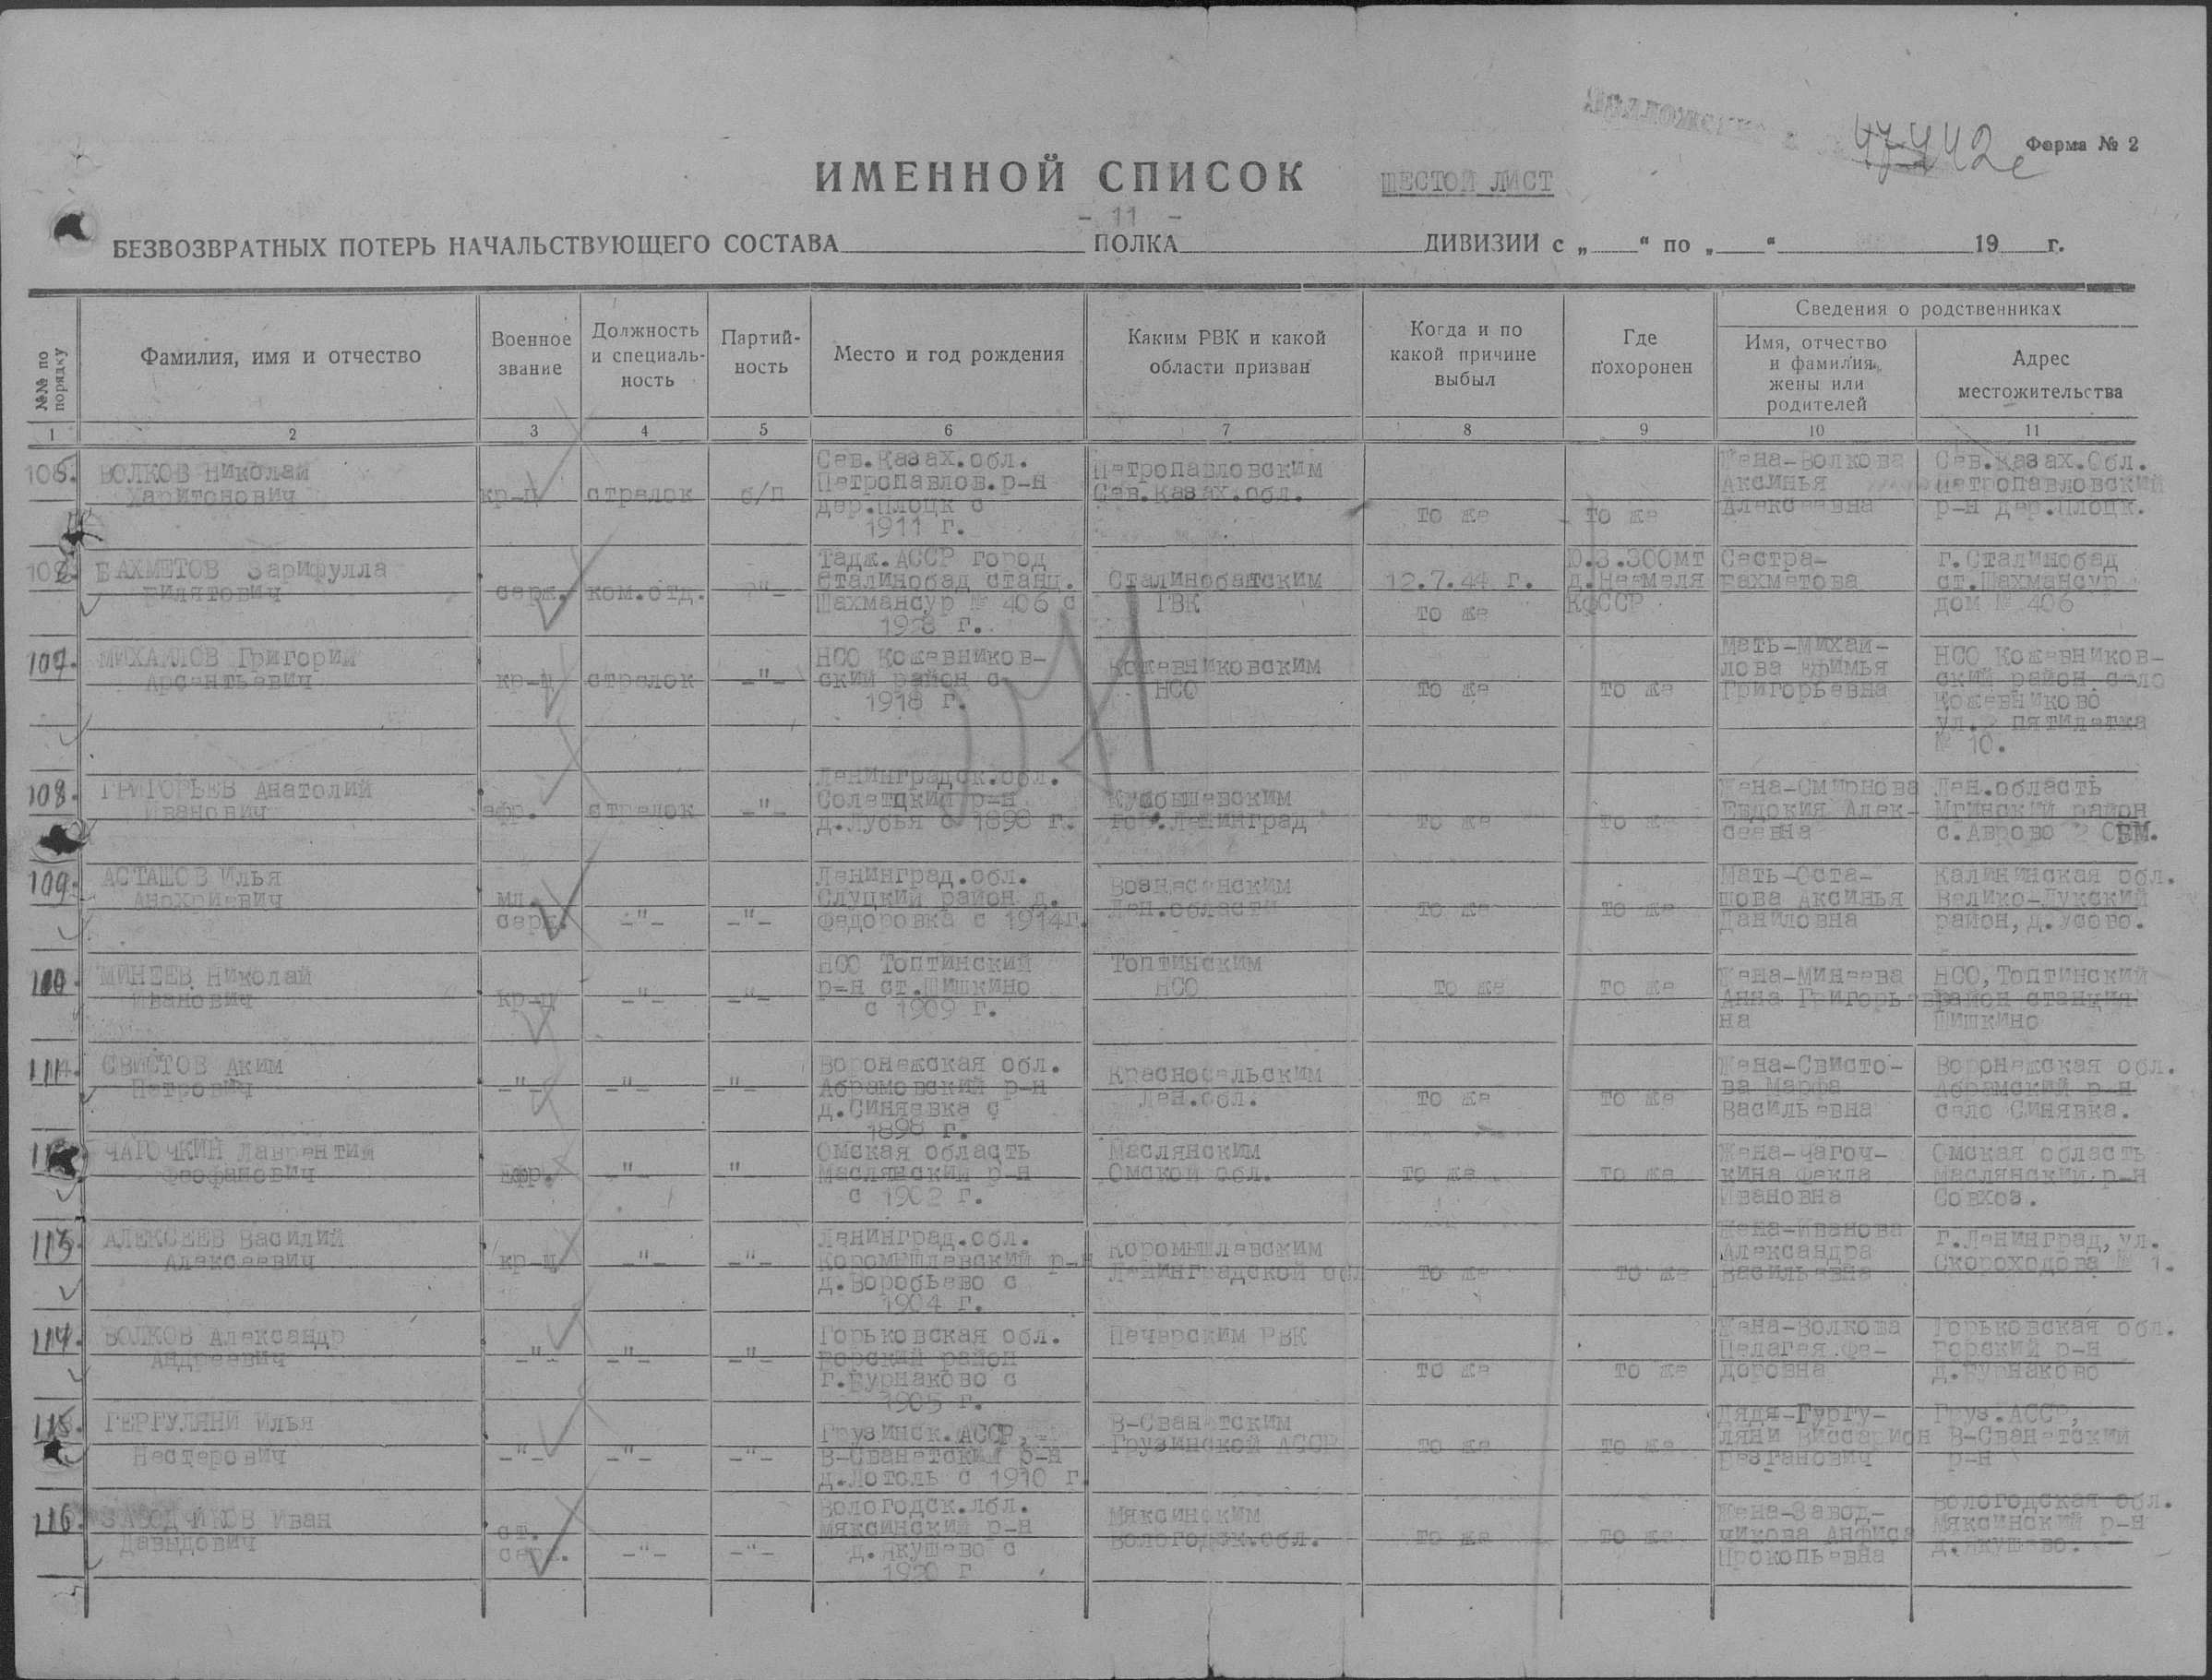 47442с
Форма № 2
ИМЕННОЙ СПИСОК ШЕСТОЙ ЛИСТ
- 11 -
БЕЗВОЗВРАТНЫХ ПОТЕРЬ НАЧАЛЬСТВУЮЩЕГО СОСТАВА ПОЛКА ДИВИЗИИ с „ “ по „ “ 19 г.
№№ по порядку
Фамилия, имя и отчество
Военное звание
Должность и специаль-ность
Партий-ность
Место и год рождения
Каким РВК и какой области призван
Когда и по какой причине выбыл
Где похоронен
Сведения о родственниках
Имя, отчество и фамилия жены или родителей
Адрес местожительства
1 2 3 4 5 6 7 8 9 10 11
105. ВОЛКОВ Николай
Харитонович
кр-ц
стрелок
б/п
Сев.Казах.обл.
Петропавлов.р-н
дер.Плоцк с
1911 г.
Петропавловским
Сев.Казах.обл.
то же
то же
Жена-Волкова
Аксинья
Алексеевна
Сев.Казах.Обл.
Петропавловский
р-н дер.Плоцк.
БАХМЕТОВ Зарифулла
Билятович
серж.
ком.отд.
-"-
Тадж.АССР город
Сталинобад станц.
Шахмансур № 406 с
1923 г.
Сталинобатским
ГВК
12.7.44 г.
то же
Ю.З.300мт
КФССР
Сестра-
Бахметова
г.Сталинобад
ст.Шахмансур
дом № 406
107. МИХАЙЛОВ Григорий
Арсентьевич
кр-ц
стрелок
-"-
НСО Кожевников-
ский район с
1918 г.
Кожевниковским
НСО
то же
то же
Мать-Михай-
лова Ефимья
Григорьевна
НСО Кожевников-
ский район село
Кожевниково
ул. пятилетка
№ 10.
108. ГРИГОРЬЕВ Анатолий
Иванович
ефр.
стрелок
-"-
Ленинградск.обл.
Солецкий р-н
д.Лубья с 1898 г.
Куйбышевским
гор.Ленинград
то же
то же
Жена-Смирнова
Евдокия Алек-
сеевна
Лен.область
Мгинский район
с.Аврово
109. АСТАШОВ Илья
мл.
серж.
-"-
-"-
Ленинград.обл.
Слуцкий район д.
Федоровка с 1914г.
Вознесенским
Лен.области
то же
то же
Мать-Оста-
шова Аксинья
Даниловна
Калининская обл.
Велико-Лукский
район, д.Усово.
110. МИНЕЕВ Николай
Иванович
кр-ц
-"-
-"-
НСО Топтинский
р-н ст.Шишкино
с 1909 г.
Топтинским
НСО
то же
то же
Жена-Минеева
Анна Григорьев
на
НСО,Топтинский
район станция
Шишкино
111. СВИСТОВ Аким
Петрович
-"-
-"-
-"-
Воронежская обл.
Абрамовский р-н
д.Синявка с
1898 г.
Красносельским
Лен.обл.
то же
то же
Жена-Свисто-
ва Марфа
Васильевна
Воронежская обл.
Абрамский р-н
село Синявка.
ЧАГОЧКИН Лаврентий
Феофанович
Ефр.
-"-
"
Омская область
Маслянский р-н
с 1902 г.
Маслянским
Омской обл.
то же
то же
Жена-Чагоч-
кина Фекла
Ивановна
Омская область
Маслянский р-н
Совхоз.
113. АЛЕКСЕЕВ Василий
Алексеевич
кр-ц
-"-
-"-
Ленинград.обл.
Коромышлевский р-н
д.Воробьево с
1904 г.
Коромышлевским
Ленинградской обл
то же
то же
Жена-Иванова
Александра
Васильевна
г.Ленинград,ул.
Скороходова № 1.
114. ВОЛКОВ Александр
Андреевич
-"-
-"-
-"-
Горьковская обл.
Борский район
г.Бурнаково с
1905 г.
Печерским РВК
то же
то же
Жена-Волкова
Пелагея Фе-
доровна
Горьковская обл.
Борский р-н
д.Бурнаково
115. ГЕРГУЛЯНИ Илья
Нестерович
-"-
-"-
-"-
Грузинск.АССР,
В-Сванетский р-н
д.Лотоль с 1910 г.
В-Сванетским
Грузинской АССР
то же
то же
Дядя-Гургу-
ляни Виссарион
Безганович
Груз.АССР,
В-Сванетский
р-н
116. ЗАВОДЧИКОВ Иван
Давыдович
ст.
серж.
-"-
-"-
Вологодск.лбл.
Мяксинский р-н
д.Якушево с
1920 г
Мяксинским
Вологодск.обл.
то же
то же
Жена-Завод-
чикова Анфиса
Прокопьевна
Вологодская обл.
Мяксинский р-н
д.Якушево.